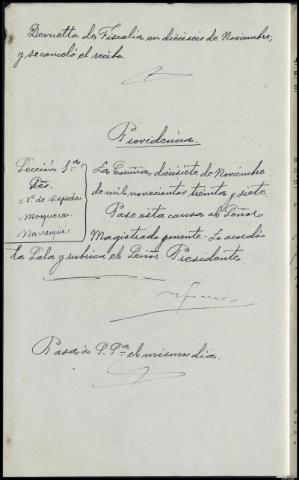 Devuelta de Fiscalia en dieciseis de Noviembre,
y se canceló el recibo
Providencia.
Sección 1ª de
Pte.
Mosquera
Navarqui
La Coruña, diecisiete de Noviembre
de mil novecientos treinta y siete
Pase esta causa al Señor
Magistrado ponente.- Lo acordó
la Sala y rubrica el Señor Presidente
Pasa á S. Sª el mismo dia.